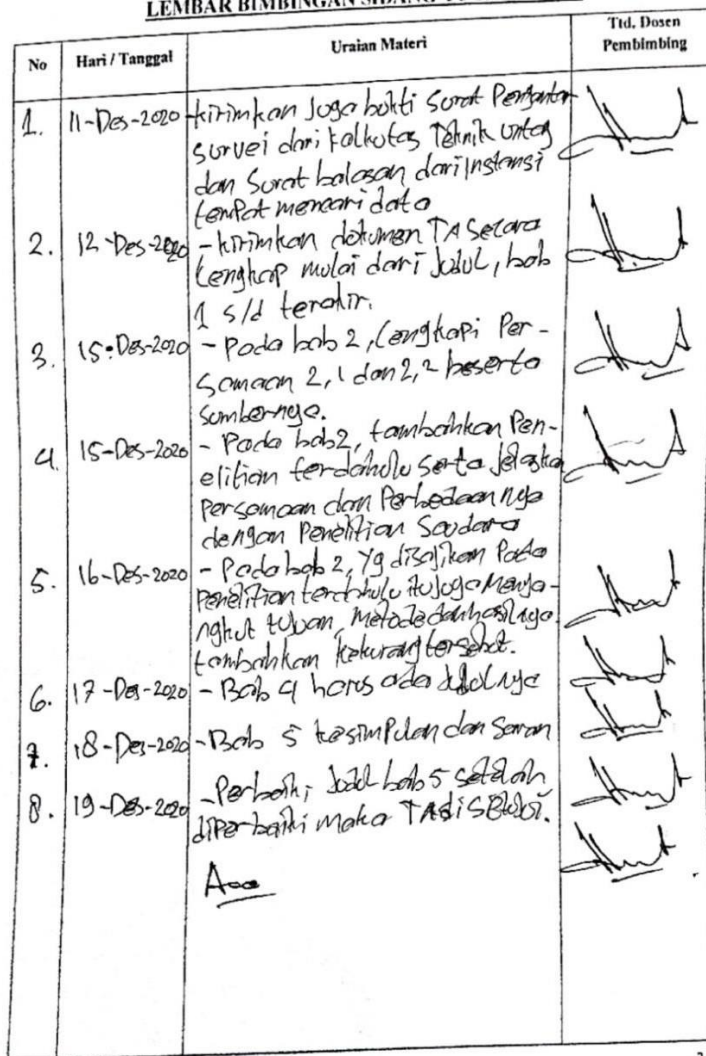 LEMBAR BIMBINGAN SIDANG
No
Hari / Tanggal
Uraian Materi
Ttd. Dosen
Pembimbing
1. 11-Des-2020 - kirimkan Juga bukti Surat Pengantar
survei dari Falkutas Teknik untag
dan Surat balasan dari instansi
tempat mencari data
2. 12-Des-2020 - kirimkan dokumen TA secara
lengkap mulai dari Judul, bab
1 s/d terakir.
3. 15-Des-2020 - Pada bab 2, lengkapi Per-
samaan 2,1 dan 2,2 beserta
sumbernya.
4. 15-Des-2020 - Pada bab 2, tambahkan Pen-
elitian terdahulu serta jelaskan
Persamaan dan Perbedaannya
dengan Penelitian Saudara
5. 16-Des-2020 - Pada bab 2, Yg disajikan Pada
Penelitian terdahulu itu Juga Menya-
ngkut tujuan, metode dan hasilnya.
tambahkan kekurang tersebut.
6. 17-Des-2020 - Bab 4 harus ada Judulnya
7. 18-Des-2020 - Bab 5 kesimpulan dan Saran
8. 19-Des-2020 - Perbaiki Judul bab 5 setelah
diperbaiki maka TA di
Acc